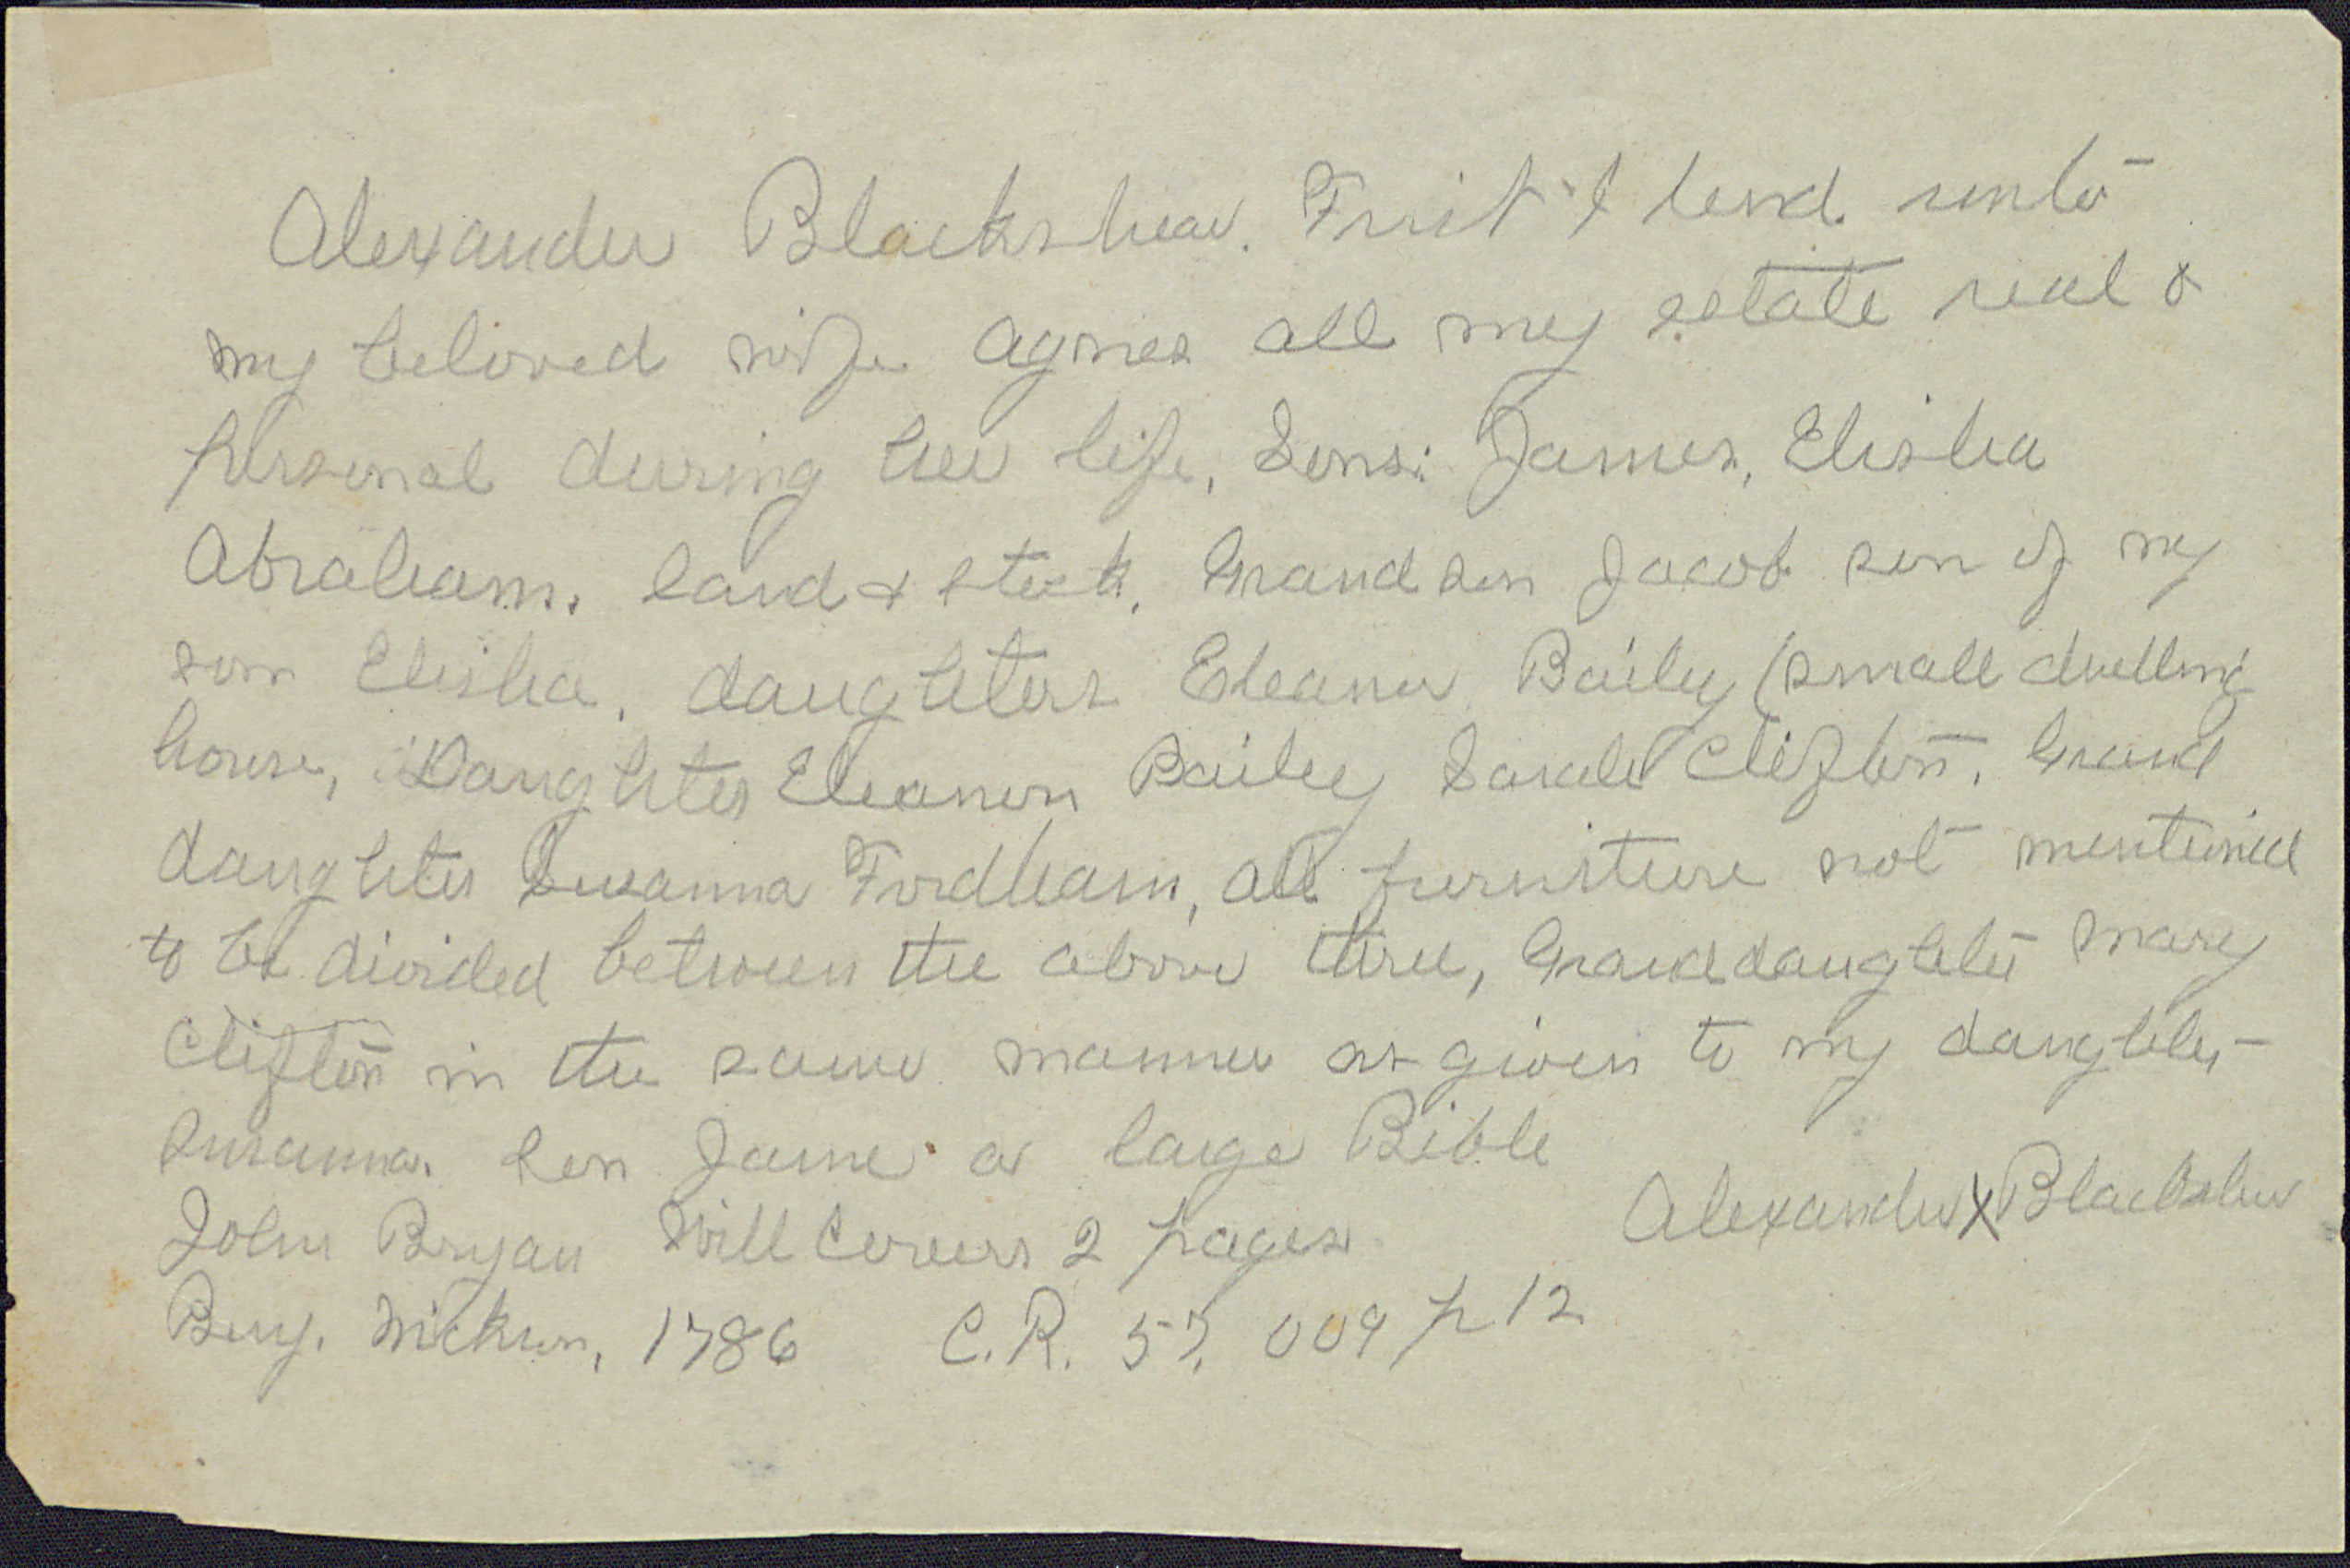 Alexander Blackshear. First I lend unto
my beloved wife Agnes all my estate real &
personal during her life, Sons: James, Elisha
Abraham. land & stock. Grand son Jacob son of my
son Elisha. daughters Eleanor Baily (small dwelling
house, Daughter Eleanor Bailey Sarah Clifton. Grand
daughter Susanna Fordham, all furniture not mentioned
to be divided between the above three, Granddaughter Mary
Clifton in the same manner as given to my daughter
Susanna. Son Jame a large Bible
John Bryan Will Covers 2 pages Alexander X Blackshear
Benj. 1786 C.R. 57. 009 p 12